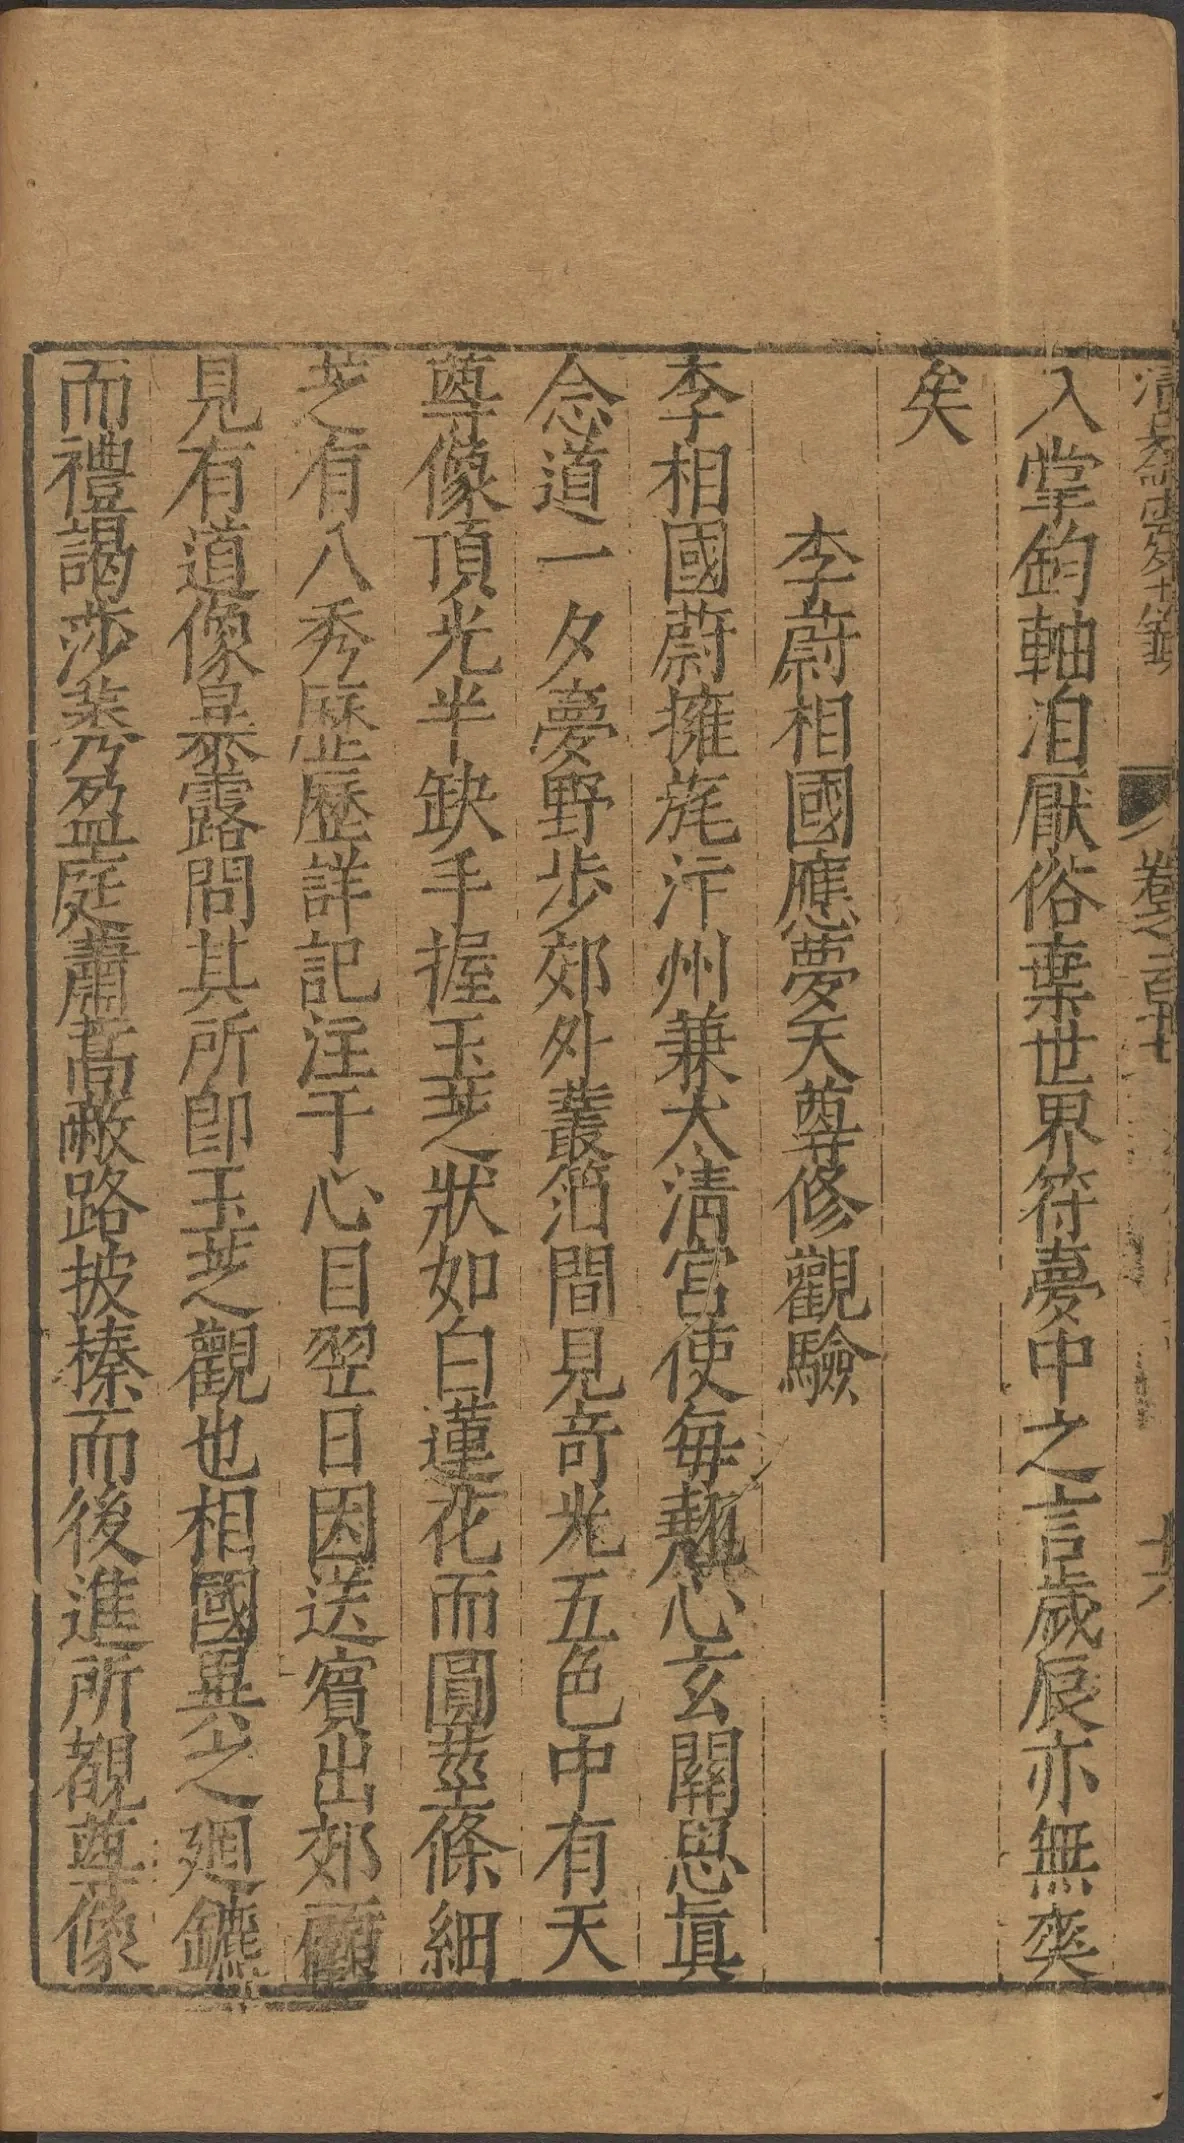 入掌鈞軸洎厭俗棄世界符夢中之言歲辰亦無奕
矣
李蔚相國應夢天尊修觀驗
李相國蔚擁旄汴州兼太清宮使每契心玄關思真
念道一夕夢野步郊外叢筠間見奇光五色中有天
尊像頂光半缺手握玉芝狀如白蓮花而圓莖條細
芝有八秀歷歷詳記注于心目翌日因送賓出郊顧
見有道像暴露問其所即玉芝觀也相國異之廻鑣
而禮謁莎莠盈庭蕭蒿蔽路披榛而後進所覩尊像